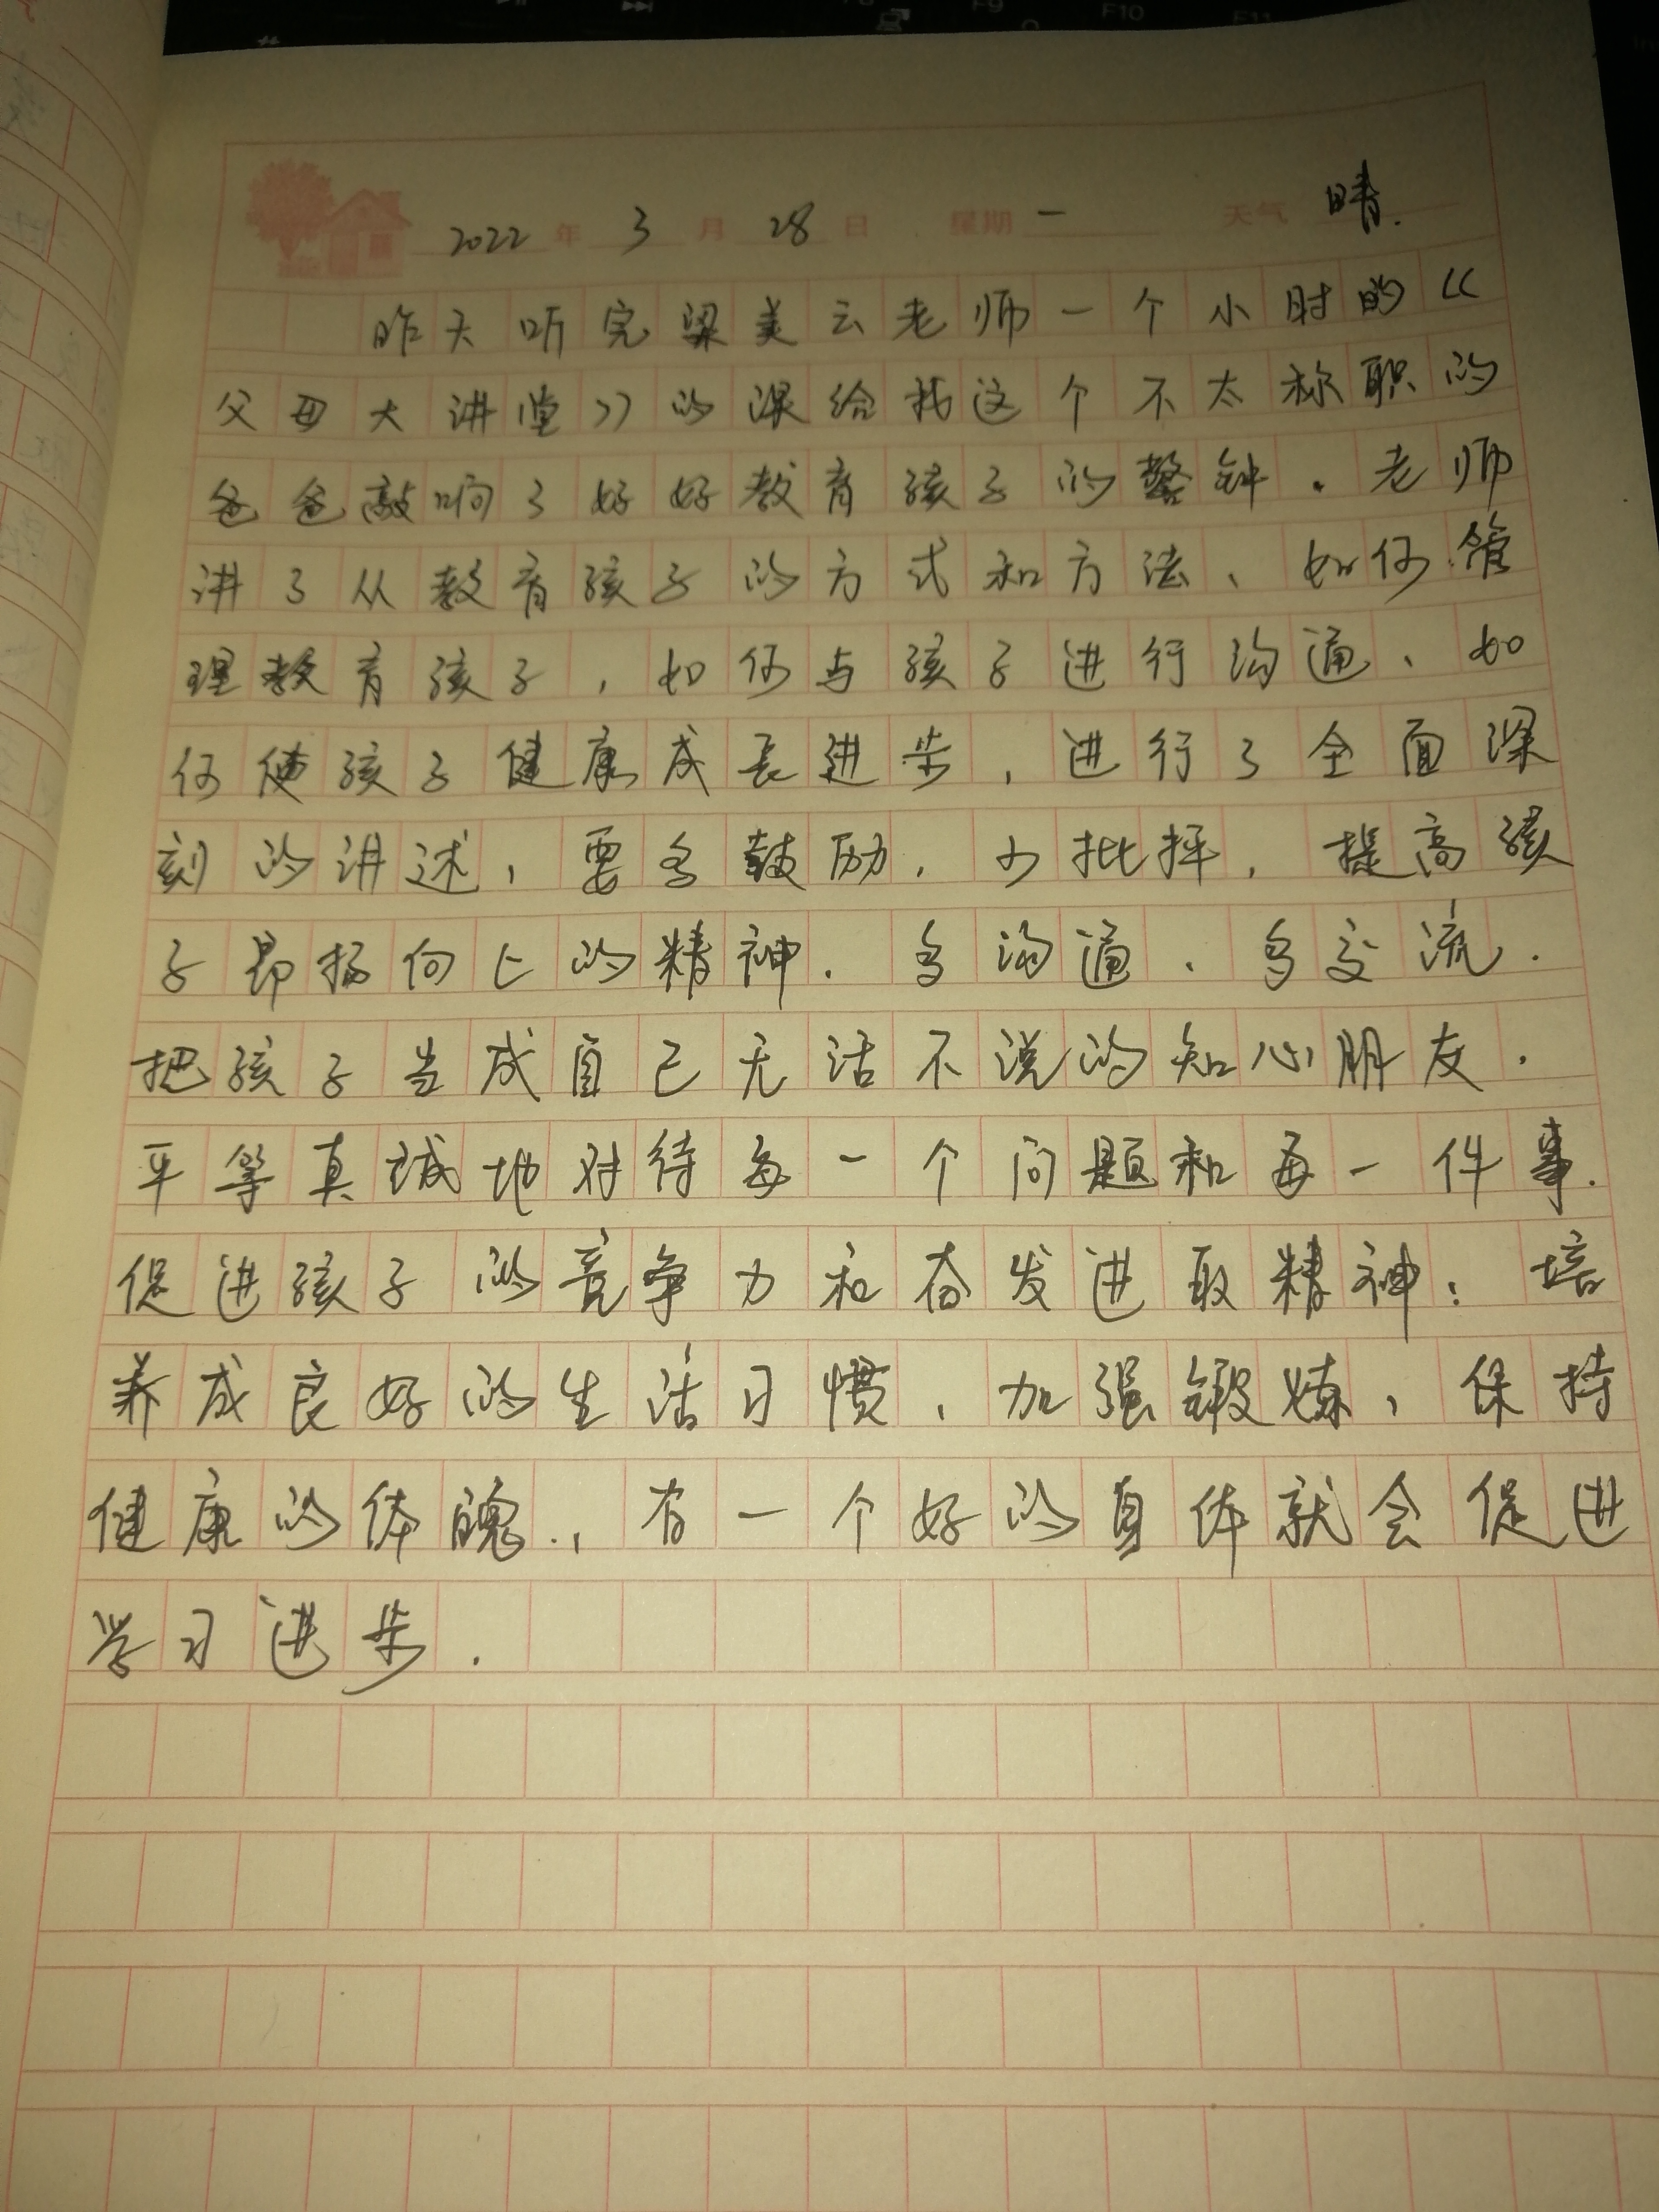 F9 F10 F11
2022 年 3 月 28 日 星期 一 天气 晴.
昨天听完梁美云老师一个小时的《
父母大讲堂》的课给我这个不太称职的
爸爸敲响了好好教育孩子的警钟.老师
讲了从教育孩子的方式和方法、如何管
理教育孩子,如何与孩子进行沟通、如
何使孩子健康成长进步,进行了全面深
刻的讲述,要多鼓励,少批抨,提高孩
子昂扬向上的精神.多沟通、多交流.
把孩子当成自己无话不说的知心朋友.
平等真诚地对待每一个问题和每一件事.
促进孩子的竞争力和奋发进取精神;培
养成良好的生活习惯,加强锻炼,保持
健康的体魄.,有一个好的身体就会促进
学习进步.